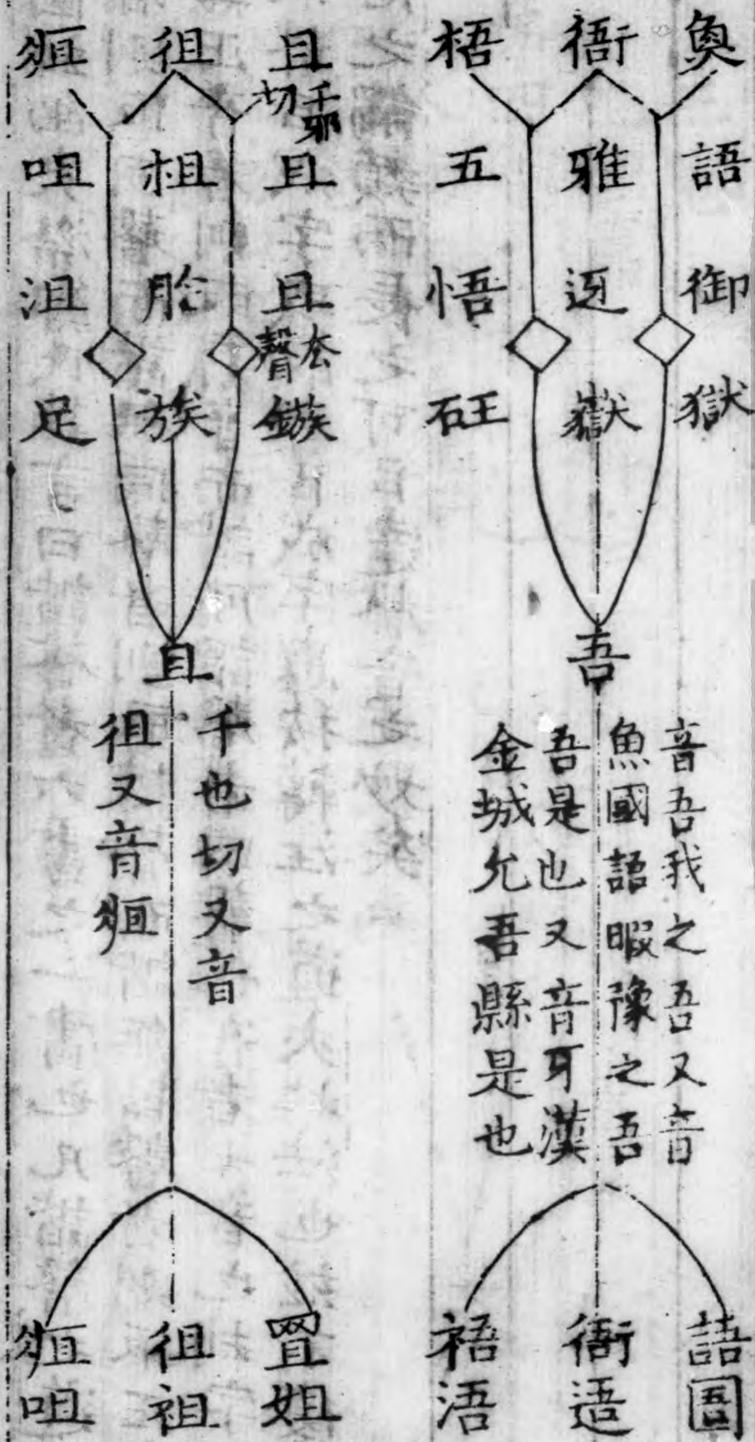 魚語御獄
衙雅迓嶽
梧五悟砡
吾
音吾我之吾又音
魚國語暇豫之吾
吾是也又音牙漢
金城允吾縣是也
語圄
衙逜
浯
且千邪切且且去聲鏃
徂柤族
咀沮足
且
千也切又音
徂又音
罝姐
徂祖
咀